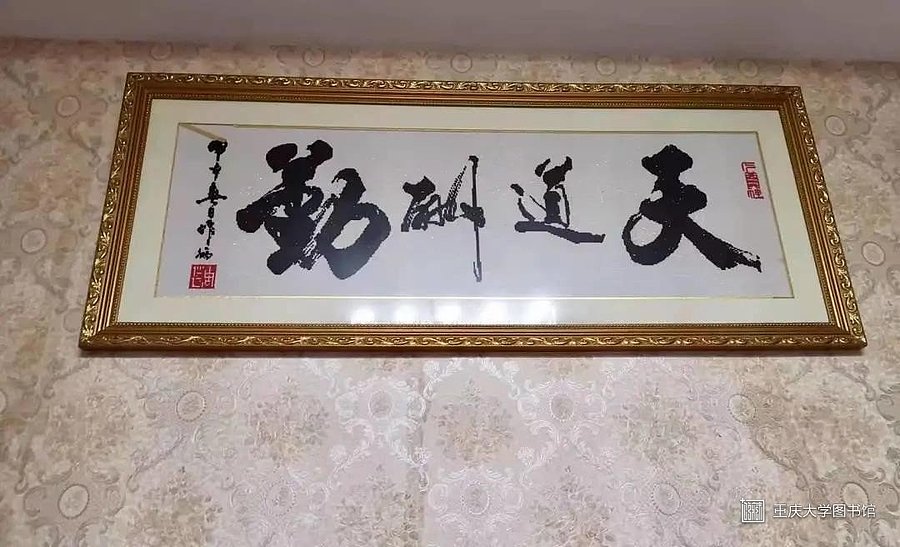 天道酬勤
甲午春日作
王庆大学图书馆